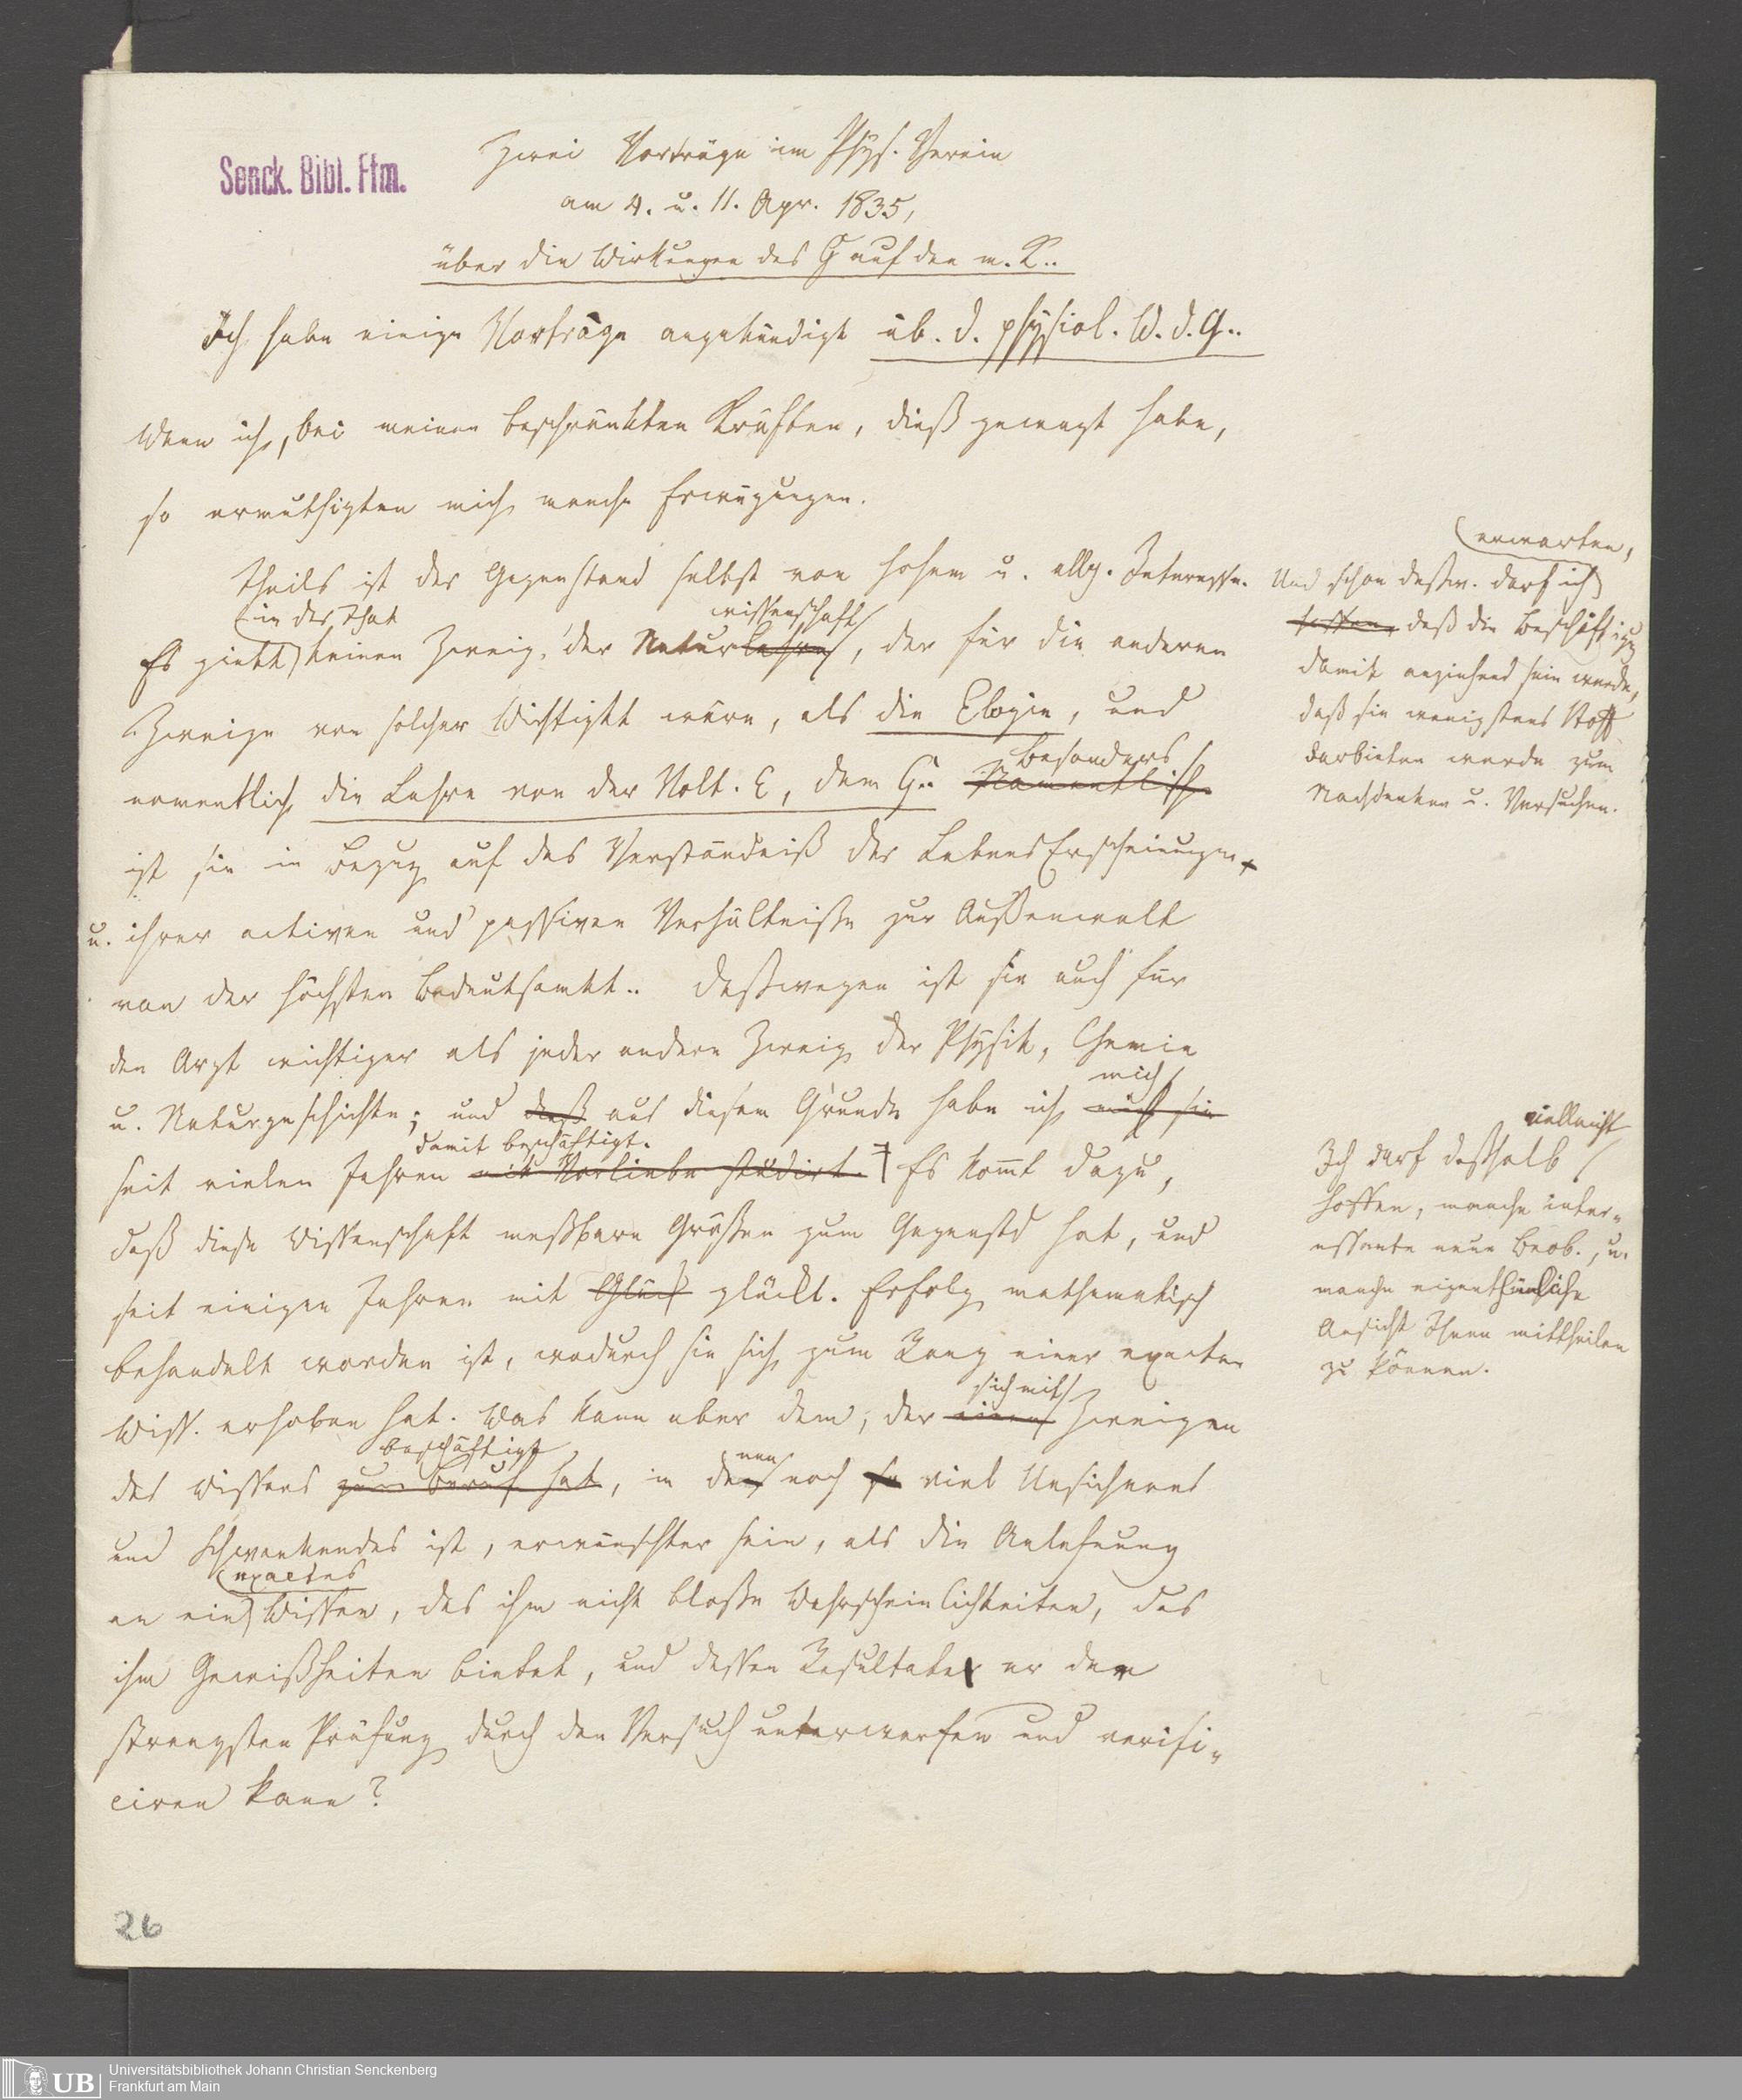 Senck. Bibl. Ffm.
Zwei Vorträge im Phys. Verein
am 4. u. 11. Apr. 1835,
über die Wirkungen des G auf den m. K..
Ich habe einige Vorträge angekündigt üb. d. physiol. W. d. G..
Wenn ich, bei meinen beschränkten Kräften, dieß gewagt habe,
so ermuthigten mich manche Erwägungen.
Theils ist der Gegenstand selbst von hohem u. allg. Interesse.
in der That
wissenschaft
Es giebt keinen Zweig der Naturlehre, der für die anderen
Zweige von solcher Wichtigkt wäre, als die Elogie, und
besonders
namentlich die Lehre von der Volt. E, dem G.. Namentlich
ist sie in Bezug auf das Verständniß der LebensErscheinungen
u. ihrer activen und passiven Verhältniße zur Außenwelt
von der höchsten Bedeutsamkt.. Deßwegen ist sie auch für
den Arzt wichtiger als jeder andere Zweig der Physik, Chemie
mich
u. Naturgeschichte; und dieß aus diesem Grunde habe ich mich sie
damit beschäftigt.
seit vielen Jahren mit Vorliebe studirt. Es kom̅t dazu,
daß diese Wissenschaft meßbare Größen zum Gegenstd hat, und
seit einigen Jahren mit Glück glücklt. Erfolg mathematisch
behandelt worden ist, wodurch sie sich zum Rang einer exacten
sich mit
Wiss. erhoben hat. Was kann aber dem, der einen Zweigen
beschäftigt
nen
des Wissens zum Beruf hat, in den noch so viel Unsicheres
und Schwankendes ist, erwünschter sein, als die Anlehnung
exactes
an ein Wissen, das ihm nicht bloße Wahrscheinlichkeiten, das
ihm Gewißheiten bietet, und dessen Resultate er der
strengsten Prüfung durch den Versuch unterwerfen und verifi-
ciren kann?
erwarten,
Und schon deßw. darf ich
hoffen, daß die Beschäftigg
damit anziehend sein werde,
daß sie wenigstens Stoff
darbieten werde zum
Nachdenken u. Versuchen.
vielleicht
Ich darf deßhalb
hoffen, manche inter-
essante neue Beob., u.
manche eigenthümliche
Ansicht Ihnen mittheilen
zu können.
26
UB
Universitätsbibliothek Johann Christian Senckenberg
Frankfurt am Main